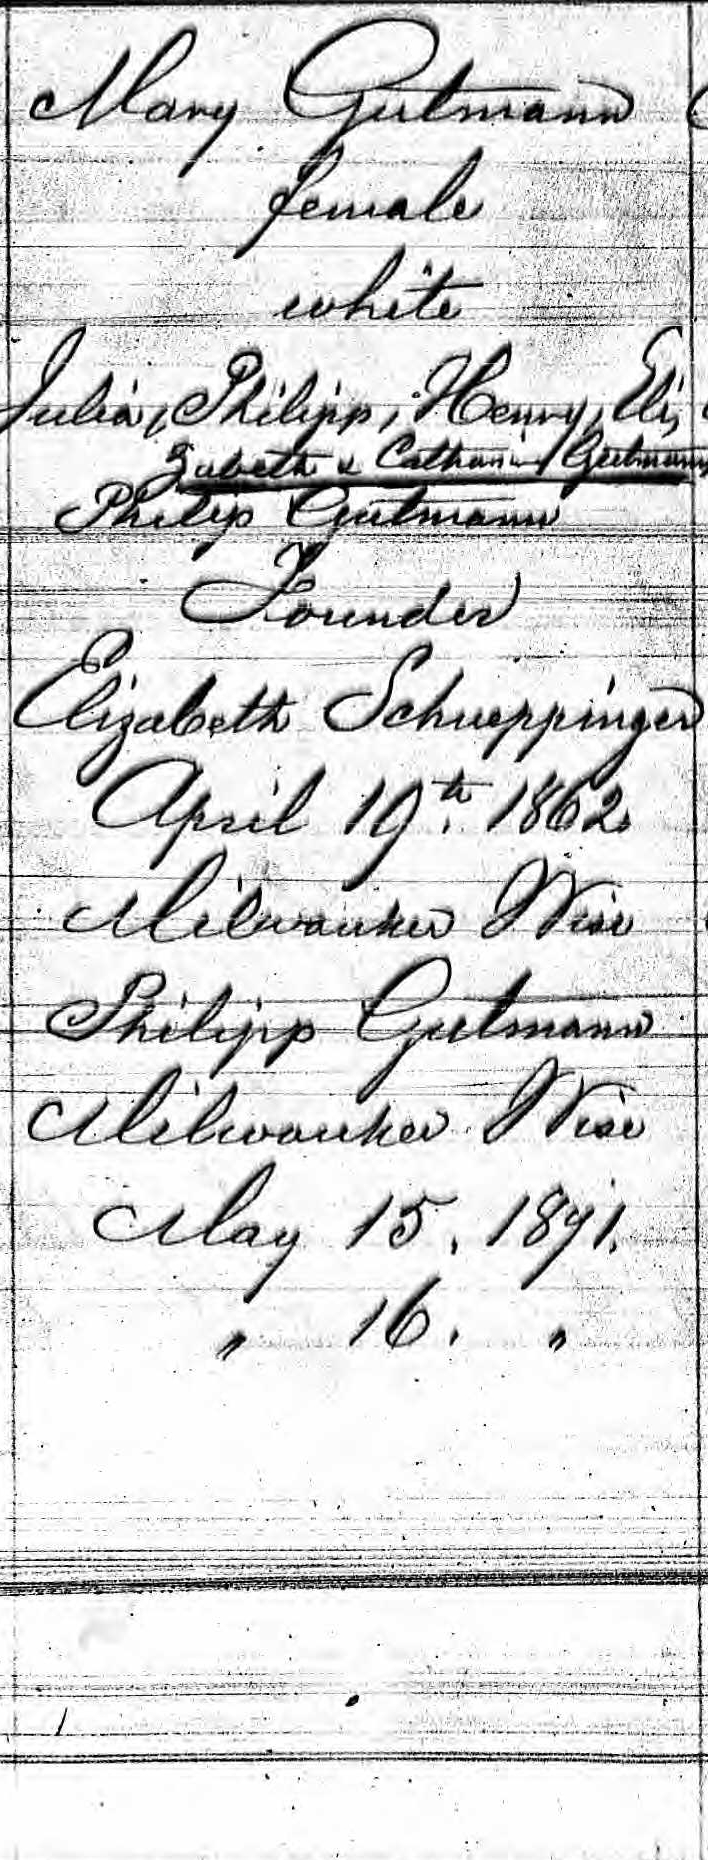 Mary Gutmann
female
white
Julia, Philipp, Henry, Eli,
zabeth & Catharine Gutmann
Philip Gutmann
Founder
Elizabeth Schueppinger
April 19th. 1862
Milwaukee Wise
Philipp Gutmann
Milwaukee Wise
May 15. 1891.
" 16. "